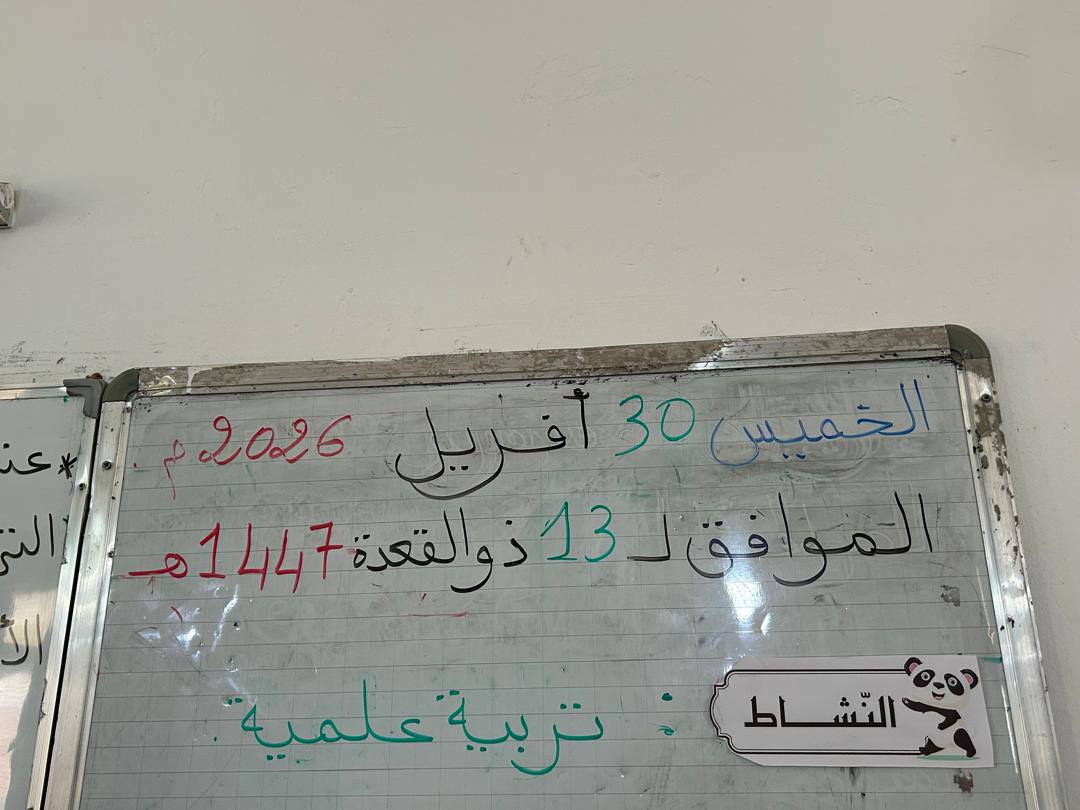 الخميس 30 أفريل 2026 م.
الموافق لـ 13 ذوالقعدة 1447هـ
النّشاط : تربية علمية.
* عند